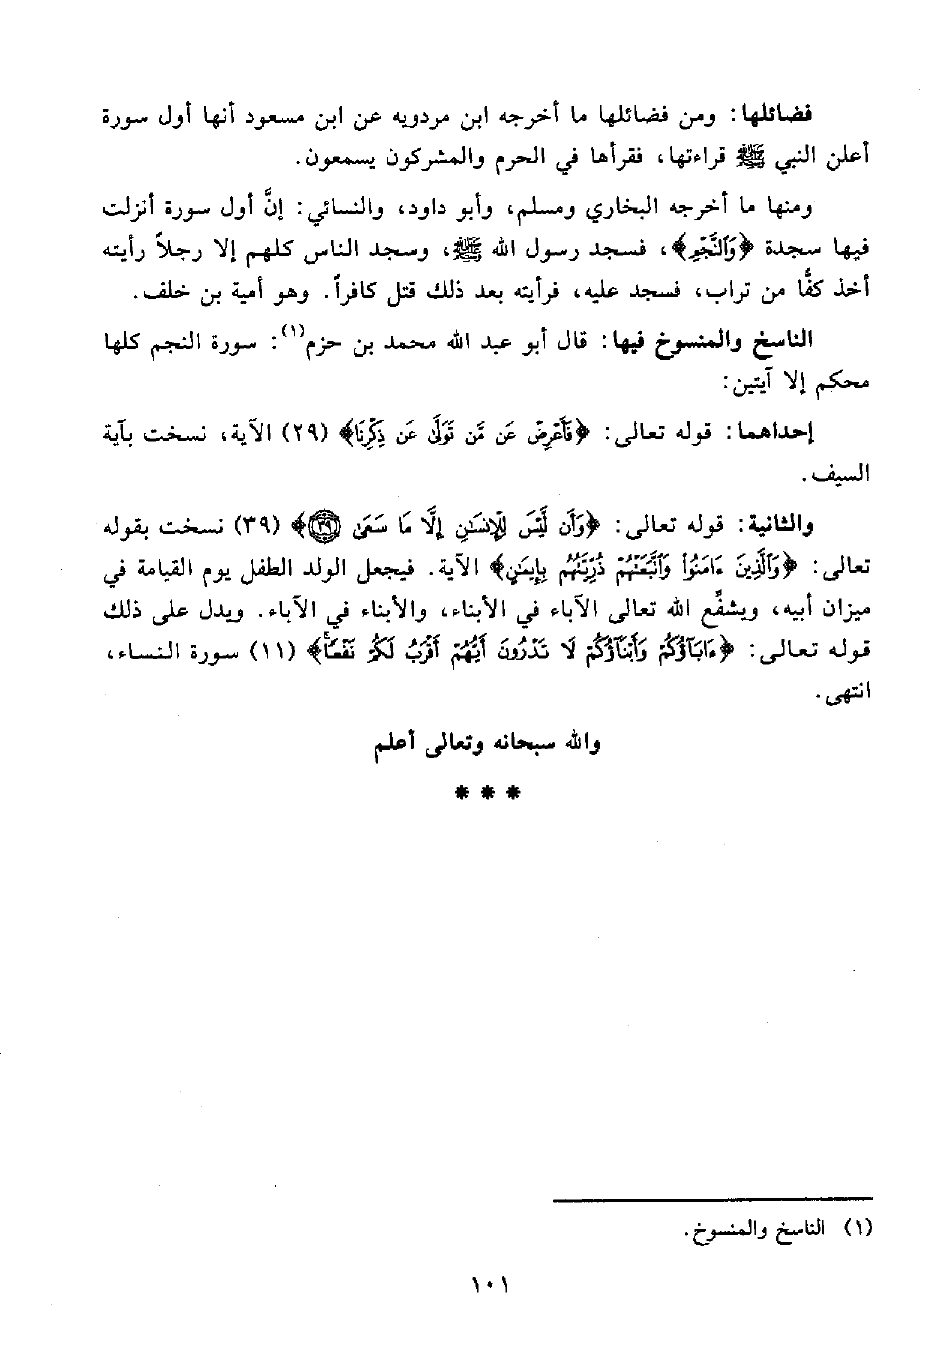 فضائلها: ومن فضائلها ما أخرجه ابن مردويه عن ابن مسعود أنها أول سورة
أعلن النبي ﷺ قراءتها، فقرأها في الحرم والمشركون يسمعون.
ومنها ما أخرجه البخاري ومسلم، وأبو داود، والنسائي: إنَّ أول سورة أنزلت
فيها سجدة ﴿وَالنَّجْمِ﴾، فسجد رسول الله ﷺ، وسجد الناس كلهم إلا رجلاً رأيته
أخذ كفًّا من تراب، فسجد عليه، فرأيته بعد ذلك قتل كافراً. وهو أمية بن خلف.
الناسخ والمنسوخ فيها: قال أبو عبد الله محمد بن حزم(١): سورة النجم كلها
محكم إلا آيتين:
إحداهما: قوله تعالى: ﴿فَأَعْرِضْ عَن مَّن تَوَلَّى عَن ذِكْرِنَا﴾ (٢٩) الآية، نسخت بآية
السيف.
والثانية: قوله تعالى: ﴿وَأَن لَّيْسَ لِلْإِنسَٰنِ إِلَّا مَا سَعَىٰ ٣٩﴾ (٣٩) نسخت بقوله
تعالى: ﴿وَالَّذِينَ ءَامَنُوا وَاتَّبَعَتْهُمْ ذُرِّيَّتُهُم بِإِيمَٰنٍ﴾ الآية. فيجعل الولد الطفل يوم القيامة في
ميزان أبيه، ويشفِّع الله تعالى الآباء في الأبناء، والأبناء في الآباء. ويدل على ذلك
قوله تعالى: ﴿ءَابَآؤُكُمْ وَأَبْنَآؤُكُمْ لَا تَدْرُونَ أَيُّهُمْ أَقْرَبُ لَكُمْ نَفْعًا﴾ (١١) سورة النساء،
انتهى.
والله سبحانه وتعالى أعلم
* * *
(١) الناسخ والمنسوخ.
١٠١